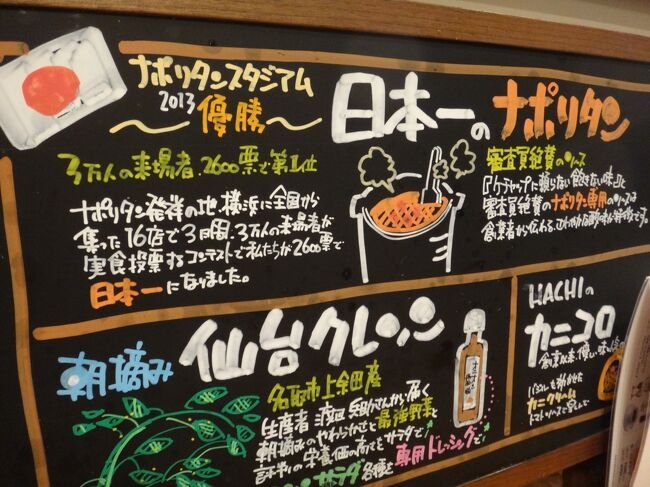 ナポリタンスタジアム
2013 優勝
3万人の来場者、2600票で第1位
ナポリタン発祥の地、横浜に全国から
集った16店で3日間、3万人の来場者が
実食投票するコンテストで私たちが2600票で
日本一になりました。
日本一のナポリタン
審査員絶賛のソース
『ケチャップに頼らない飽きない味』と
審査員絶賛のナポリタン専用のソースは
創業者から伝わる、
朝摘み 仙台クレソン
名取市上余田産
生産者 渡辺 さんから届く
朝摘みのやわらかさと最強野菜と
評判の栄養価の高さをサラダで。
サラダ各種を専用ドレッシングで
HACHIの
カニコロ
創業以来、優しい味
カニクリーム
トマトソースで